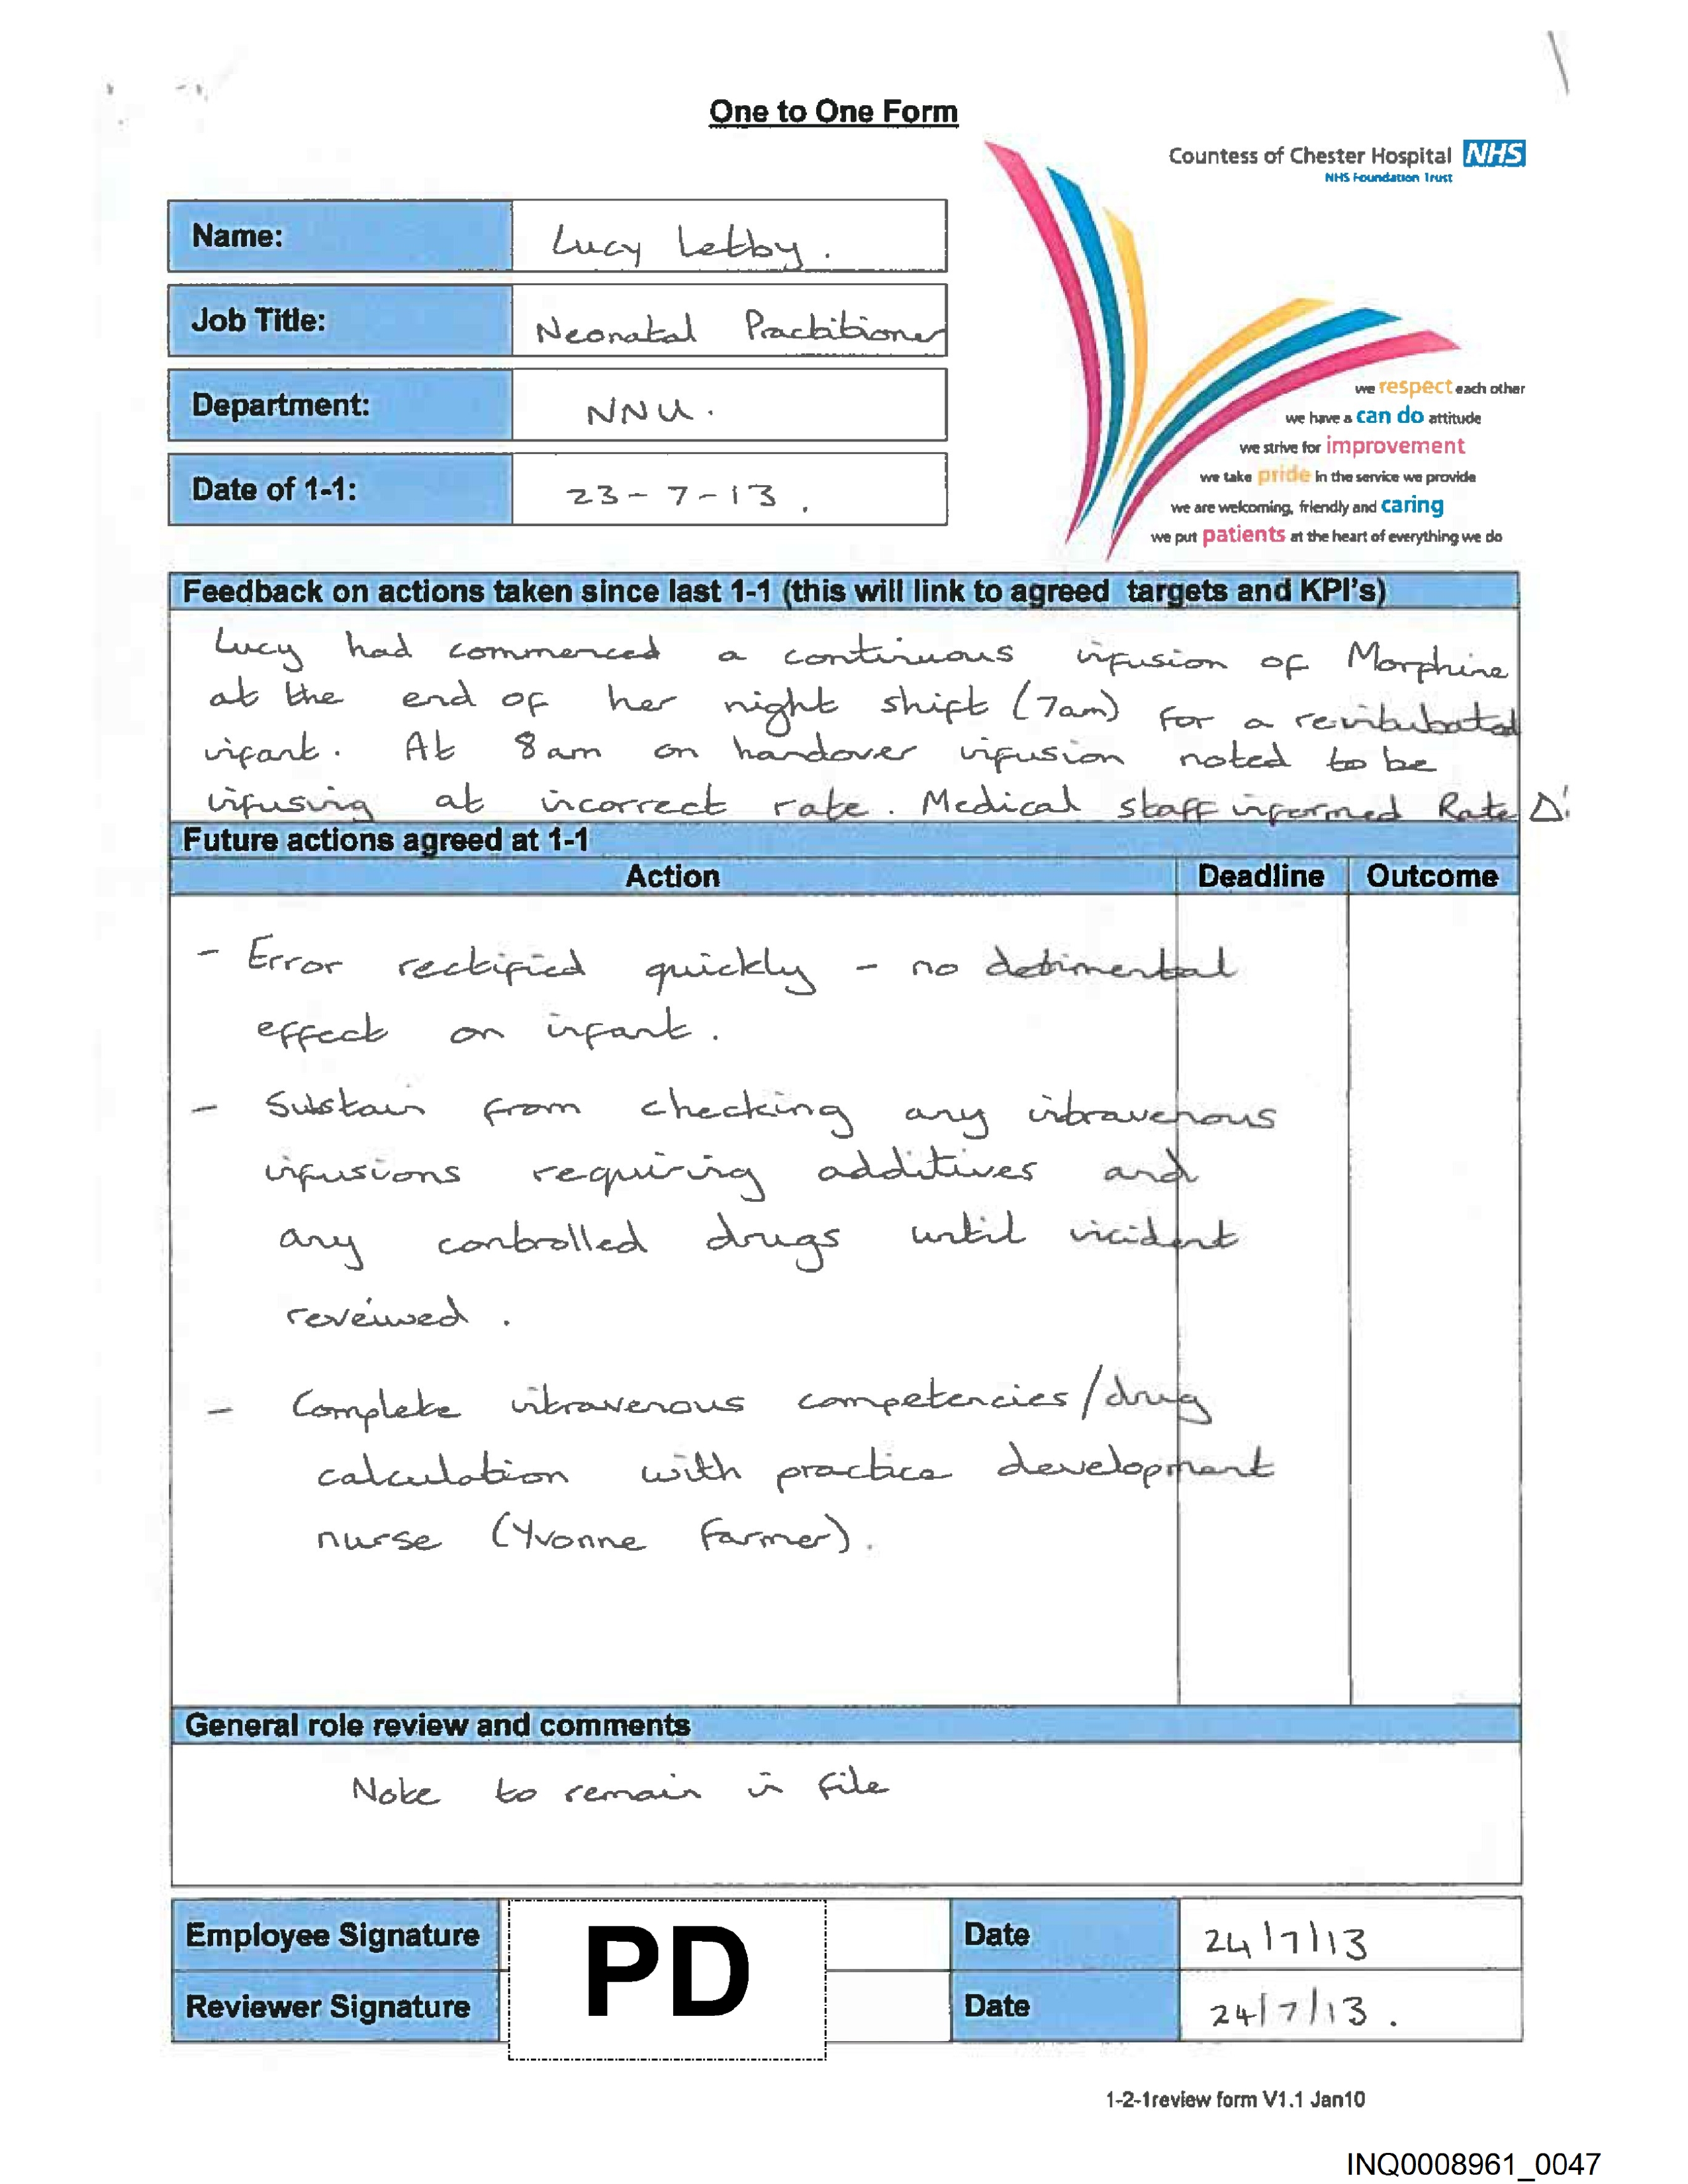 One to One Form
Countess of Chester Hospital NHS
NHS Foundation Trust
Name: Lucy Letby.
Job Title: Neonatal Practitioner
Department: NNU.
Date of 1-1: 23-7-13.
we respect each other
we have a can do attitude
we strive for improvement
we take pride in the service we provide
we are welcoming, friendly and caring
we put patients at the heart of everything we do
Feedback on actions taken since last 1-1 (this will link to agreed targets and KPI's)
Lucy had commenced a continuous infusion of Morphine
at the end of her night shift (7am) for a reintubated
infant. At 8am on handover infusion noted to be
infusing at incorrect rate. Medical staff informed Rate Δ'
Future actions agreed at 1-1
Action Deadline Outcome
- Error rectified quickly - no detrimental
effect on infant.
- Sustain from checking any intravenous
infusions requiring additives and
any controlled drugs until incident
reveiwed.
- Complete intravenous competencies/drug
calculation with practice development
nurse (Yvonne Farmer).
General role review and comments
Note to remain in file
Employee Signature PD Date 24/7/13
Reviewer Signature Date 24/7/13.
1-2-1review form V1.1 Jan10
INQ0008961_0047